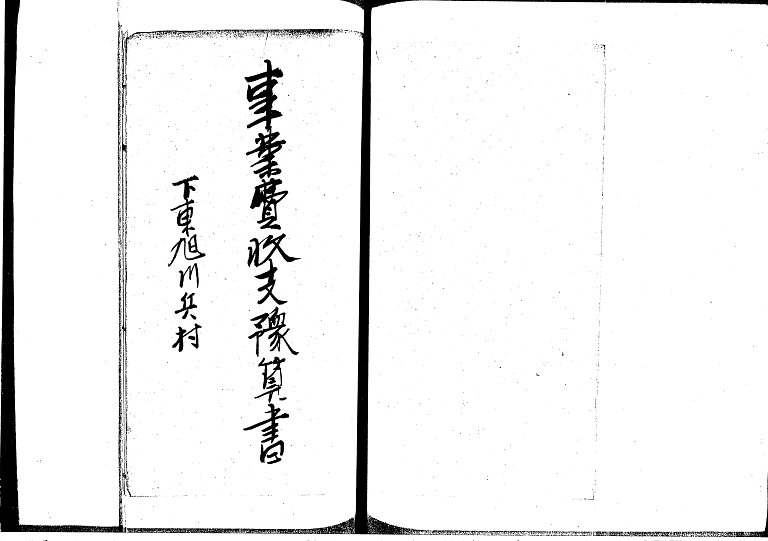 事業費收支豫算書
下東旭川兵村